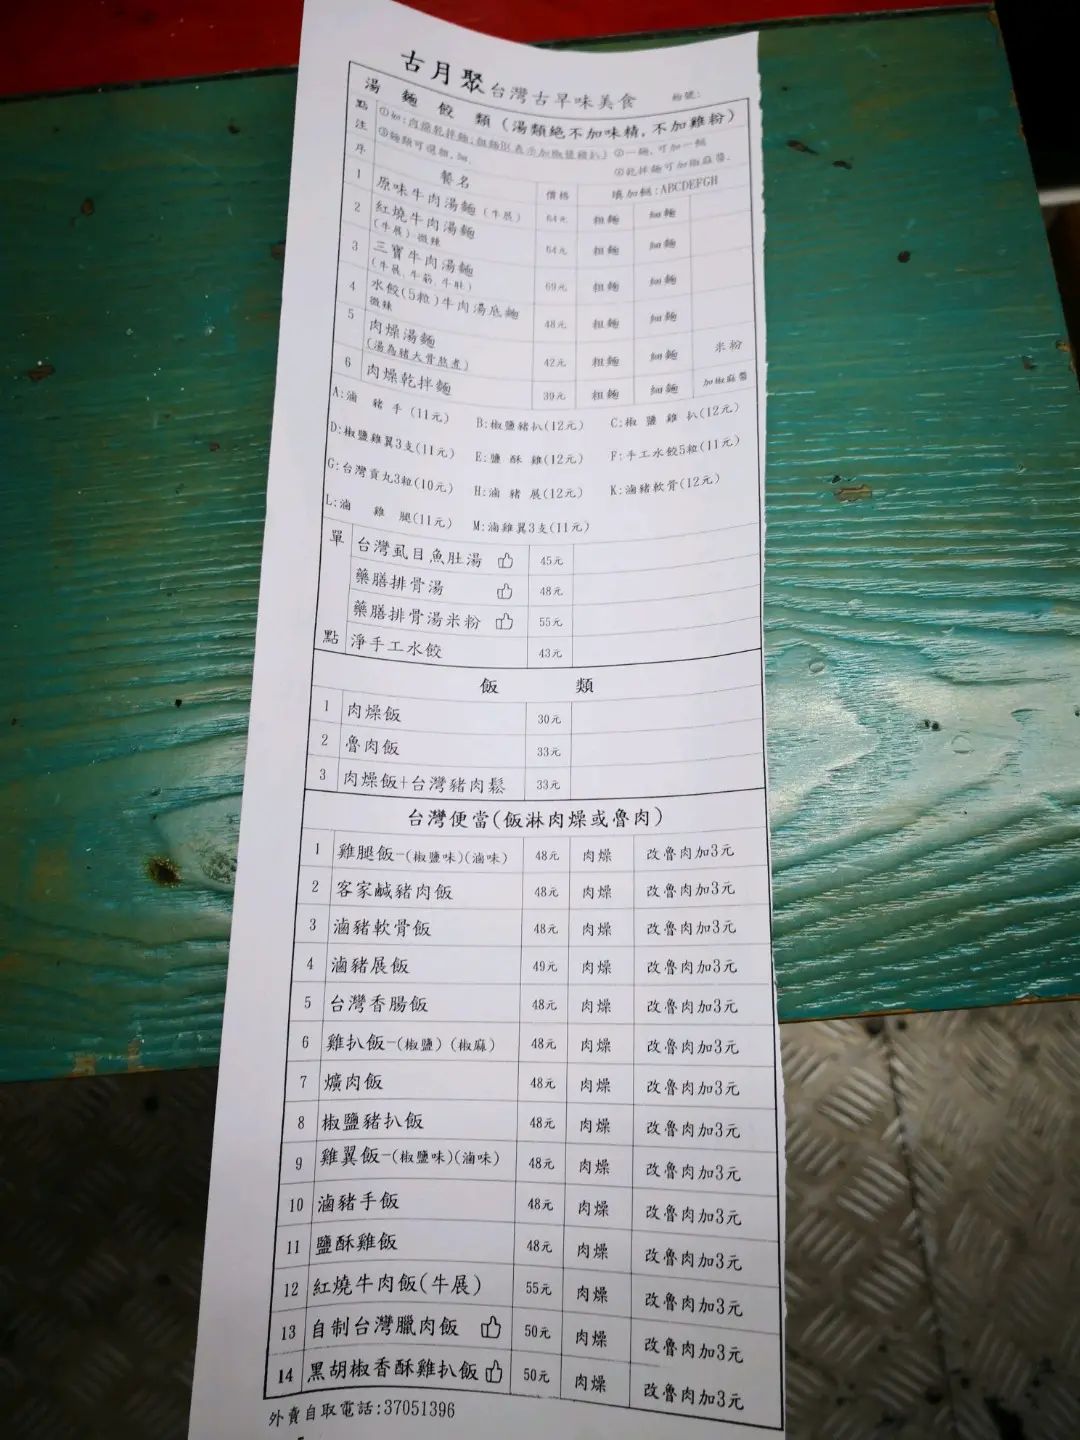 古月聚台灣古早味美食 枱號:
湯麵餃類(湯類絕不加味精,不加雞粉)
點注 ①如:肉燥乾拌麵:粗麵則B表示加椒鹽豬扒) ②一麵,可加一餸
③麵類可選粗,細. ④乾拌麵可加椒麻醬.
序 餐名 價格 填加餸:ABCDEFGH
1 原味牛肉湯麵(牛展) 64元 粗麵 細麵
2 紅燒牛肉湯麵 64元 粗麵 細麵
(牛展)微辣
3 三寶牛肉湯麵 69元 粗麵 細麵
(牛展,牛筋,牛肚)
4 水餃(5粒)牛肉湯底麵 48元 粗麵 細麵
微辣
5 肉燥湯麵 42元 粗麵 細麵 米粉
(湯為豬大骨熬煮)
6 肉燥乾拌麵 39元 粗麵 細麵 加椒麻醬
A:滷豬手(11元) B:椒鹽豬扒(12元) C:椒鹽雞扒(12元)
D:椒鹽雞翼3支(11元) E:鹽酥雞(12元) F:手工水餃5粒(11元)
G:台灣貢丸3粒(10元) H:滷豬展(12元) K:滷豬軟骨(12元)
L:滷雞腿(11元) M:滷雞翼3支(11元)
單點
台灣虱目魚肚湯 45元
藥膳排骨湯 48元
藥膳排骨湯米粉 55元
淨手工水餃 43元
飯類
1 肉燥飯 30元
2 魯肉飯 33元
3 肉燥飯+台灣豬肉鬆 33元
台灣便當(飯淋肉燥或魯肉)
1 雞腿飯-(椒鹽味)(滷味) 48元 肉燥 改魯肉加3元
2 客家鹹豬肉飯 48元 肉燥 改魯肉加3元
3 滷豬軟骨飯 48元 肉燥 改魯肉加3元
4 滷豬展飯 49元 肉燥 改魯肉加3元
5 台灣香腸飯 48元 肉燥 改魯肉加3元
6 雞扒飯-(椒鹽)(椒麻) 48元 肉燥 改魯肉加3元
7 爌肉飯 48元 肉燥 改魯肉加3元
8 椒鹽豬扒飯 48元 肉燥 改魯肉加3元
9 雞翼飯-(椒鹽味)(滷味) 48元 肉燥 改魯肉加3元
10 滷豬手飯 48元 肉燥 改魯肉加3元
11 鹽酥雞飯 48元 肉燥 改魯肉加3元
12 紅燒牛肉飯(牛展) 55元 肉燥 改魯肉加3元
13 自制台灣臘肉飯 50元 肉燥 改魯肉加3元
14 黑胡椒香酥雞扒飯 50元 肉燥 改魯肉加3元
外賣自取電話:37051396